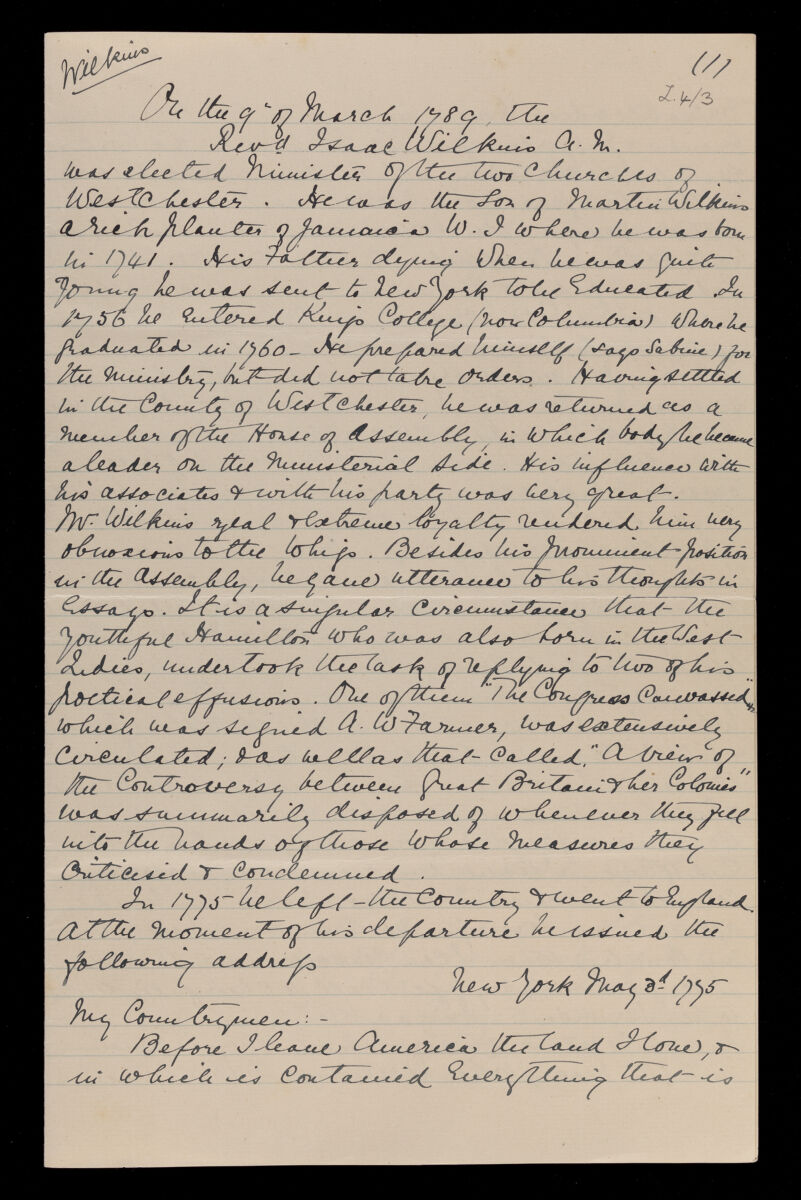 Wilkins
(1)
2.4/3
On the 9" of March 1789, the
Revd Isaac Wilkins A.M.
was elected Minister of the two Churches of
WestChester. He was the Son of Martin Wilkins
a rich planter of Jamaica W. I where he was born
in 1741. His Father dying when he was quite
young he was sent to New York to be Educated. In
1756 he Entered Kings College (now Columbia) where he
graduated in 1760 - He prepared himself (says Sabine) for
the ministry, but did not take orders. Having settled
in the County of WestChester, he was returned as a
member of the House of Assembly, in which body he became
a leader on the ministerial side. His influence with
his associates & with his party was very great.
Mr. Wilkins zeal & extreme loyalty rendered him very
obnoxious to the Whigs. Besides his prominent position
in the Assembly, he gave utterance to his thoughts in
Essays. It is a singular circumstance that the
youthful Hamilton who was also born in the West
Indies, undertook the task of replying to two of his
poetical effusions. One of them "The Congress Canvassed"
which was signed A. W Farmer, was extensively
circulated; & as well as that called, "A view of
the Controversy between Great Britain & her Colonies"
was summarily disposed of whenever they fell
into the hands of those whose measures they
criticised & condemned.
In 1775 he left the Country & went to England.
At the moment of his departure he issued the
following address
New York May 3d 1775
My Countrymen: -
Before I leave America the land I love, &
in which is contained Everything that is